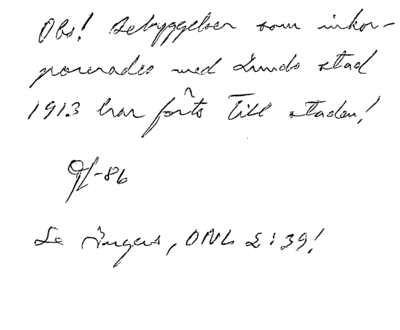 Obs! Bebyggelser som inkor-
porerades med Lunds stad
1913 har förts till staden!
9/ -86
Se Ingers, ONL 2:39!